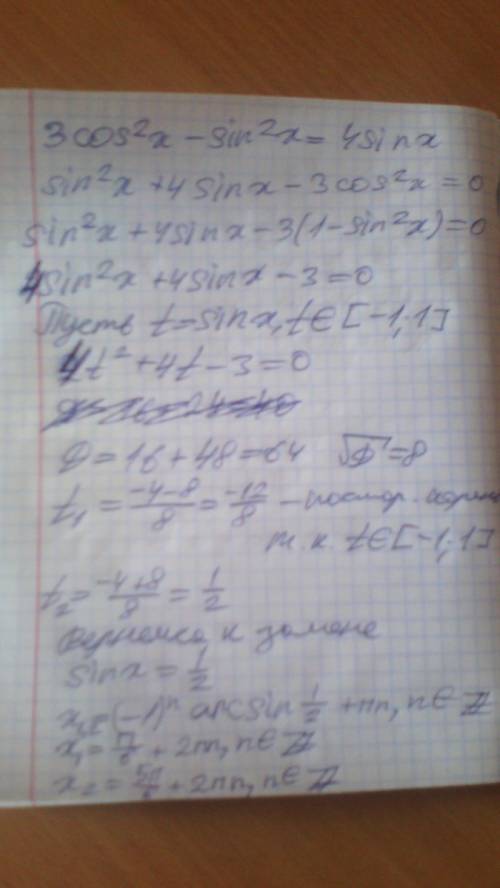 3cos²x - sin²x = 4sinx
sin²x + 4sinx - 3cos²x = 0
sin²x + 4sinx - 3(1-sin²x) = 0
4sin²x + 4sinx - 3 = 0
Пусть t = sinx, t∈[-1;1]
4t² + 4t - 3 = 0
D = 16 + 48 = 64 √D = 8
t₁ = (-4-8)/8 = -12/8 - постор. корень
т.к. t∈[-1;1]
t₂ = (-4+8)/8 = 1/2
вернемся к замене
sinx = 1/2
(-1)ⁿ arcsin 1/2 + πn, n∈Z
x₁ = π/6 + 2πn, n∈Z
x₂ = 5π/6 + 2πn, n∈Z